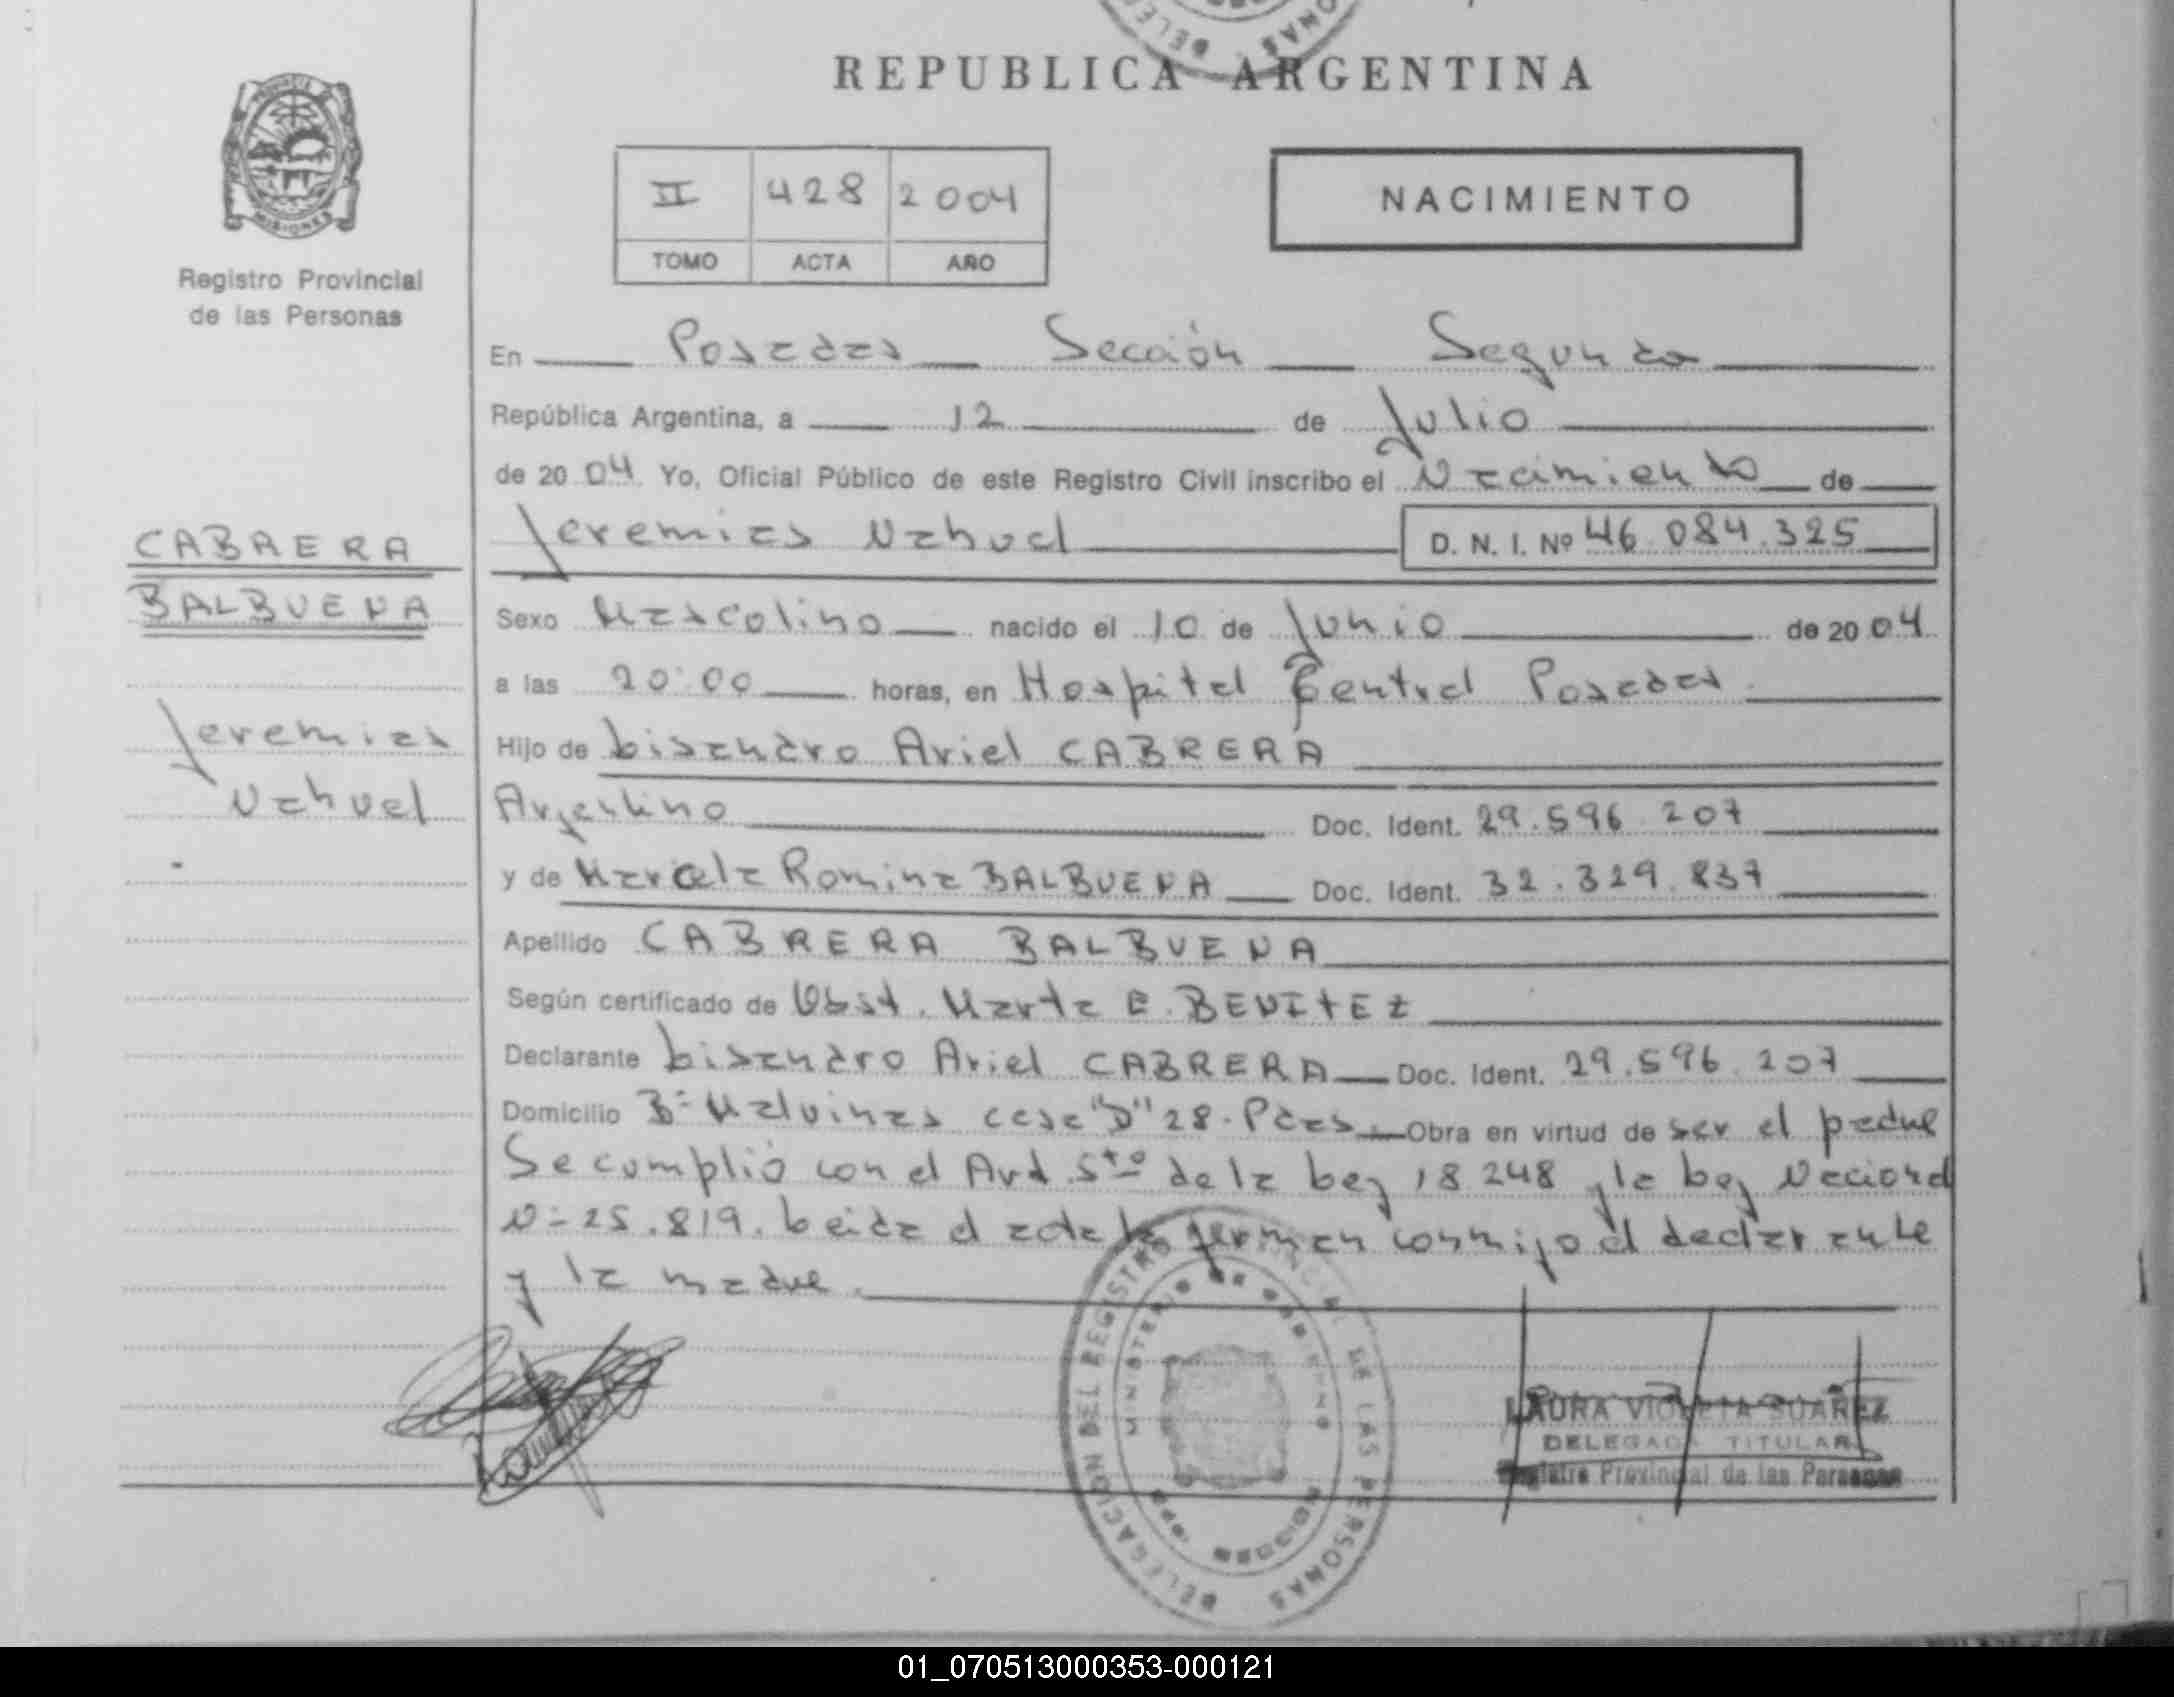 REPUBLICA ARGENTINA
MISIONES
Registro Provincial
de las Personas
II 428 2004
TOMO ACTA AÑO
NACIMIENTO
En Posadas Sección Segunda
República Argentina, a 12 de Julio
de 20 04 Yo, Oficial Público de este Registro Civil inscribo el Nacimiento de
Jeremias Nahuel D. N. I. Nº 46.084.325
CABRERA
BALBUENA
Jeremias
Nahuel
Sexo Masculino nacido el 10 de Junio de 20 04
a las 20:00 horas, en Hospital Central Posadas.
Hijo de Lisandro Ariel CABRERA
Argentino Doc. Ident. 29.596.207
y de Marcela Romina BALBUENA Doc. Ident. 32.329.837
Apellido CABRERA BALBUENA
Según certificado de Obst. Marta E. BENITEZ
Declarante Lisandro Ariel CABRERA Doc. Ident. 29.596.207
Domicilio Bº Malvinas casa "D" 28. Pdas. Obra en virtud de ser el padre
Se cumplió con el Art. 5to de la Ley 18.248 y la Ley Nacional
Nº 25.819. Leida el acta la firman conmigo el declarante
y la madre.
DELEGACION DEL REGISTRO PROVINCIAL DE LAS PERSONAS
MINISTERIO DE GOBIERNO
LAURA VIOLETA SUAREZ
DELEGADA TITULAR
Registro Provincial de las Personas
01_070513000353-000121